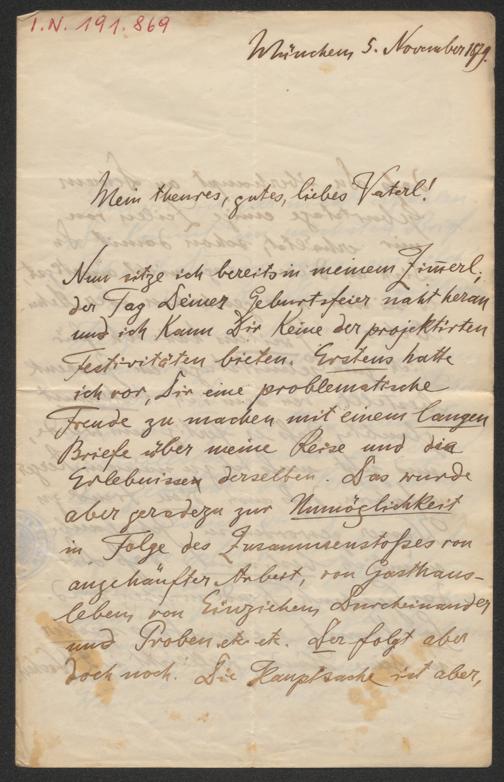 I.N. 191.869
München 5. November 1879.
Mein theures, gutes, liebes Vaterl!
Nun sitze ich bereits in meinem Zim̅erl,
der Tag Deiner Geburtsfeier naht heran
und ich kann Dir keine der projektirten
Festivitäten bieten. Erstens hatte
ich vor, Dir eine problematische
Freude zu machen mit einem langen
Briefe über meine Reise und die
Erlebnissen derselben. Das wurde
aber geradezu zur Unmöglichkeit
in Folge des Zusammenstoßes von
angehäufter Arbeit, von Gasthaus-
leben, von Einziehen, Durcheinander
und Proben etc. etc. Der folgt aber
doch noch. Die Hauptsache ist aber,